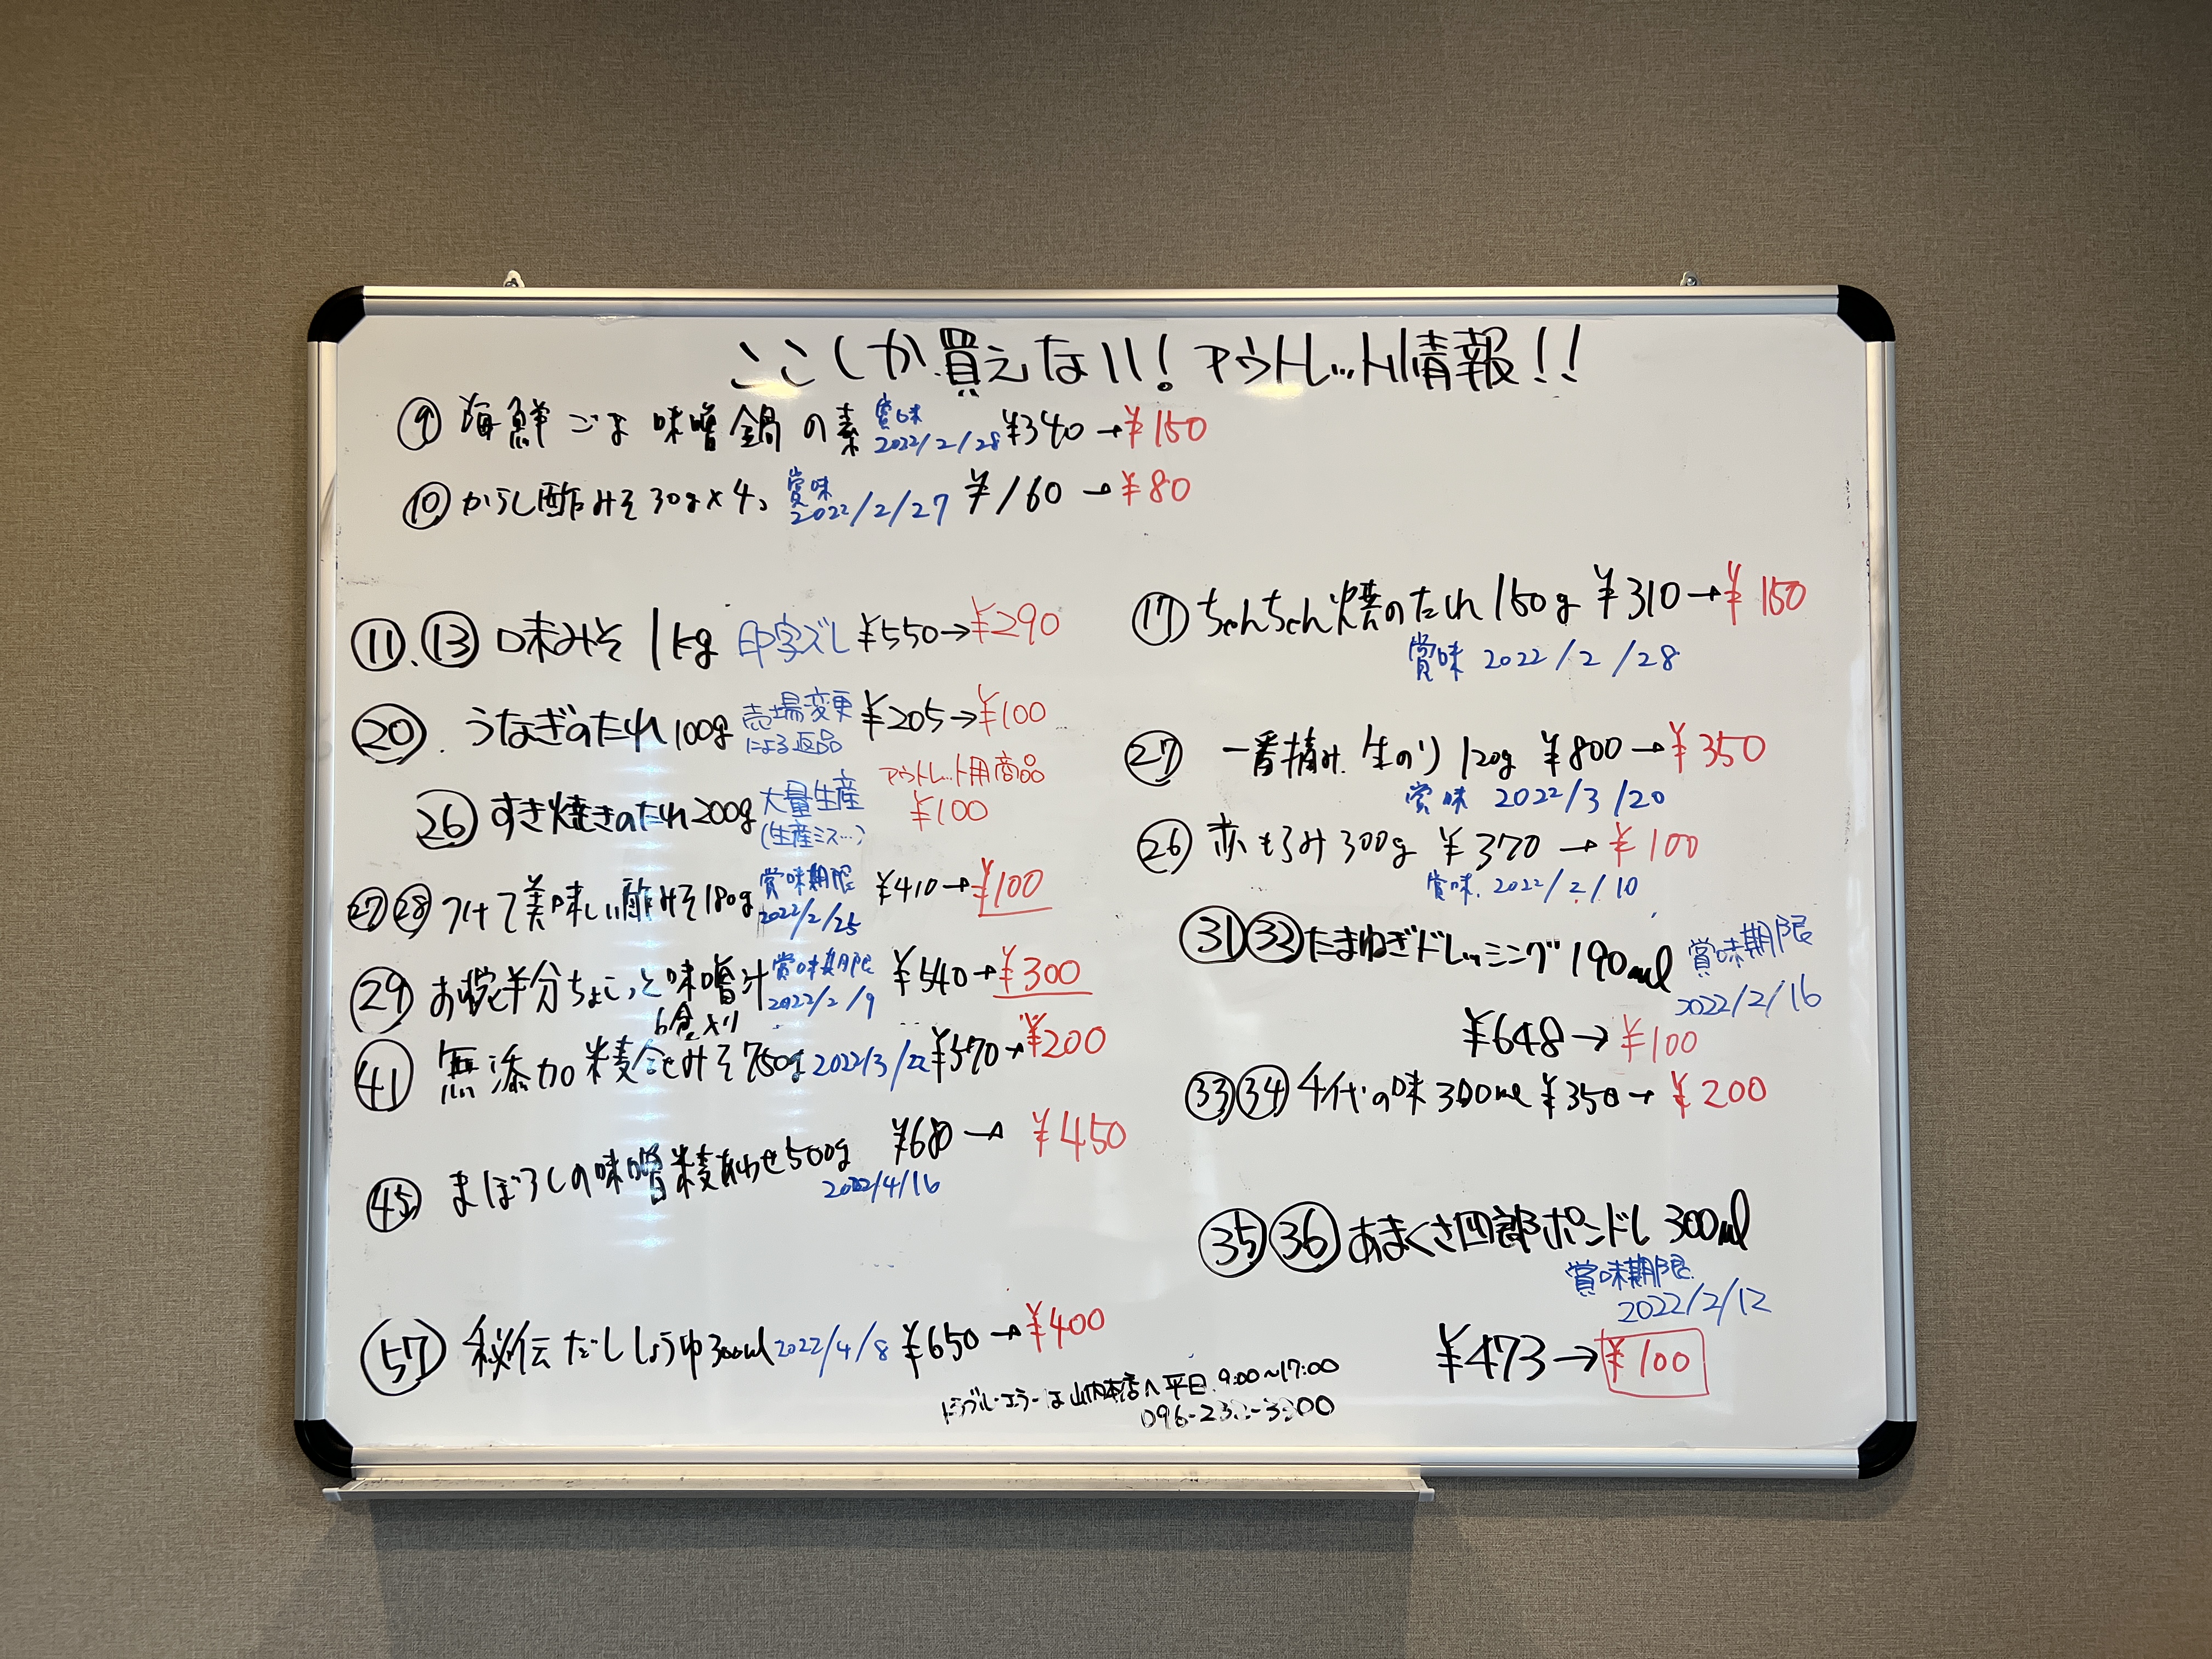 ここしか買えない！アウトレット情報！！
⑨ 海鮮ごま味噌鍋の素 賞味 2022/2/28 ¥340→¥150
⑩ からし酢みそ30g×4コ 賞味 2022/2/27 ¥160→¥80
⑪、⑬ 口末みそ 1kg 印字ズレ ¥550→¥290
⑳. うなぎのたれ100g 売場変更による返品 ¥205→¥100
㉖ すき焼きのたれ200g 大量生産(生産ミス…) アウトレット用商品 ¥100
㉗㉘ つけて美味しい酢みそ180g 賞味期限 2022/2/25 ¥410→¥100
㉙ お椀半分ちょこっと味噌汁 賞味期限 2022/2/9 ¥540→¥300
6食入り
㊶ 無添加 米麦合せみそ750g 2022/3/22 ¥370→¥200
㊺ まぼろしの味噌米麦あわせ500g ¥680→¥450
2022/4/16
57 秘伝だししょうゆ300ml 2022/4/8 ¥650→¥400
⑰ ちゃんちゃん焼のたれ150g ¥310→¥150
賞味 2022/2/28
㉗ 一番摘み 生のり120g ¥800→¥350
賞味 2022/3/20
㉖ 赤もろみ300g ¥370→¥100
賞味.2022/2/10
㉛㉜たまねぎドレッシング190ml 賞味期限
2022/2/16
¥648→¥100
㉝㉞千代の味300ml ¥350→¥200
㉟㊱あまくさ四郎ポンドレ 300ml
賞味期限
2022/2/12
¥473→¥100
トラブル・エラーは山内本店へ 平日 9:00〜17:00